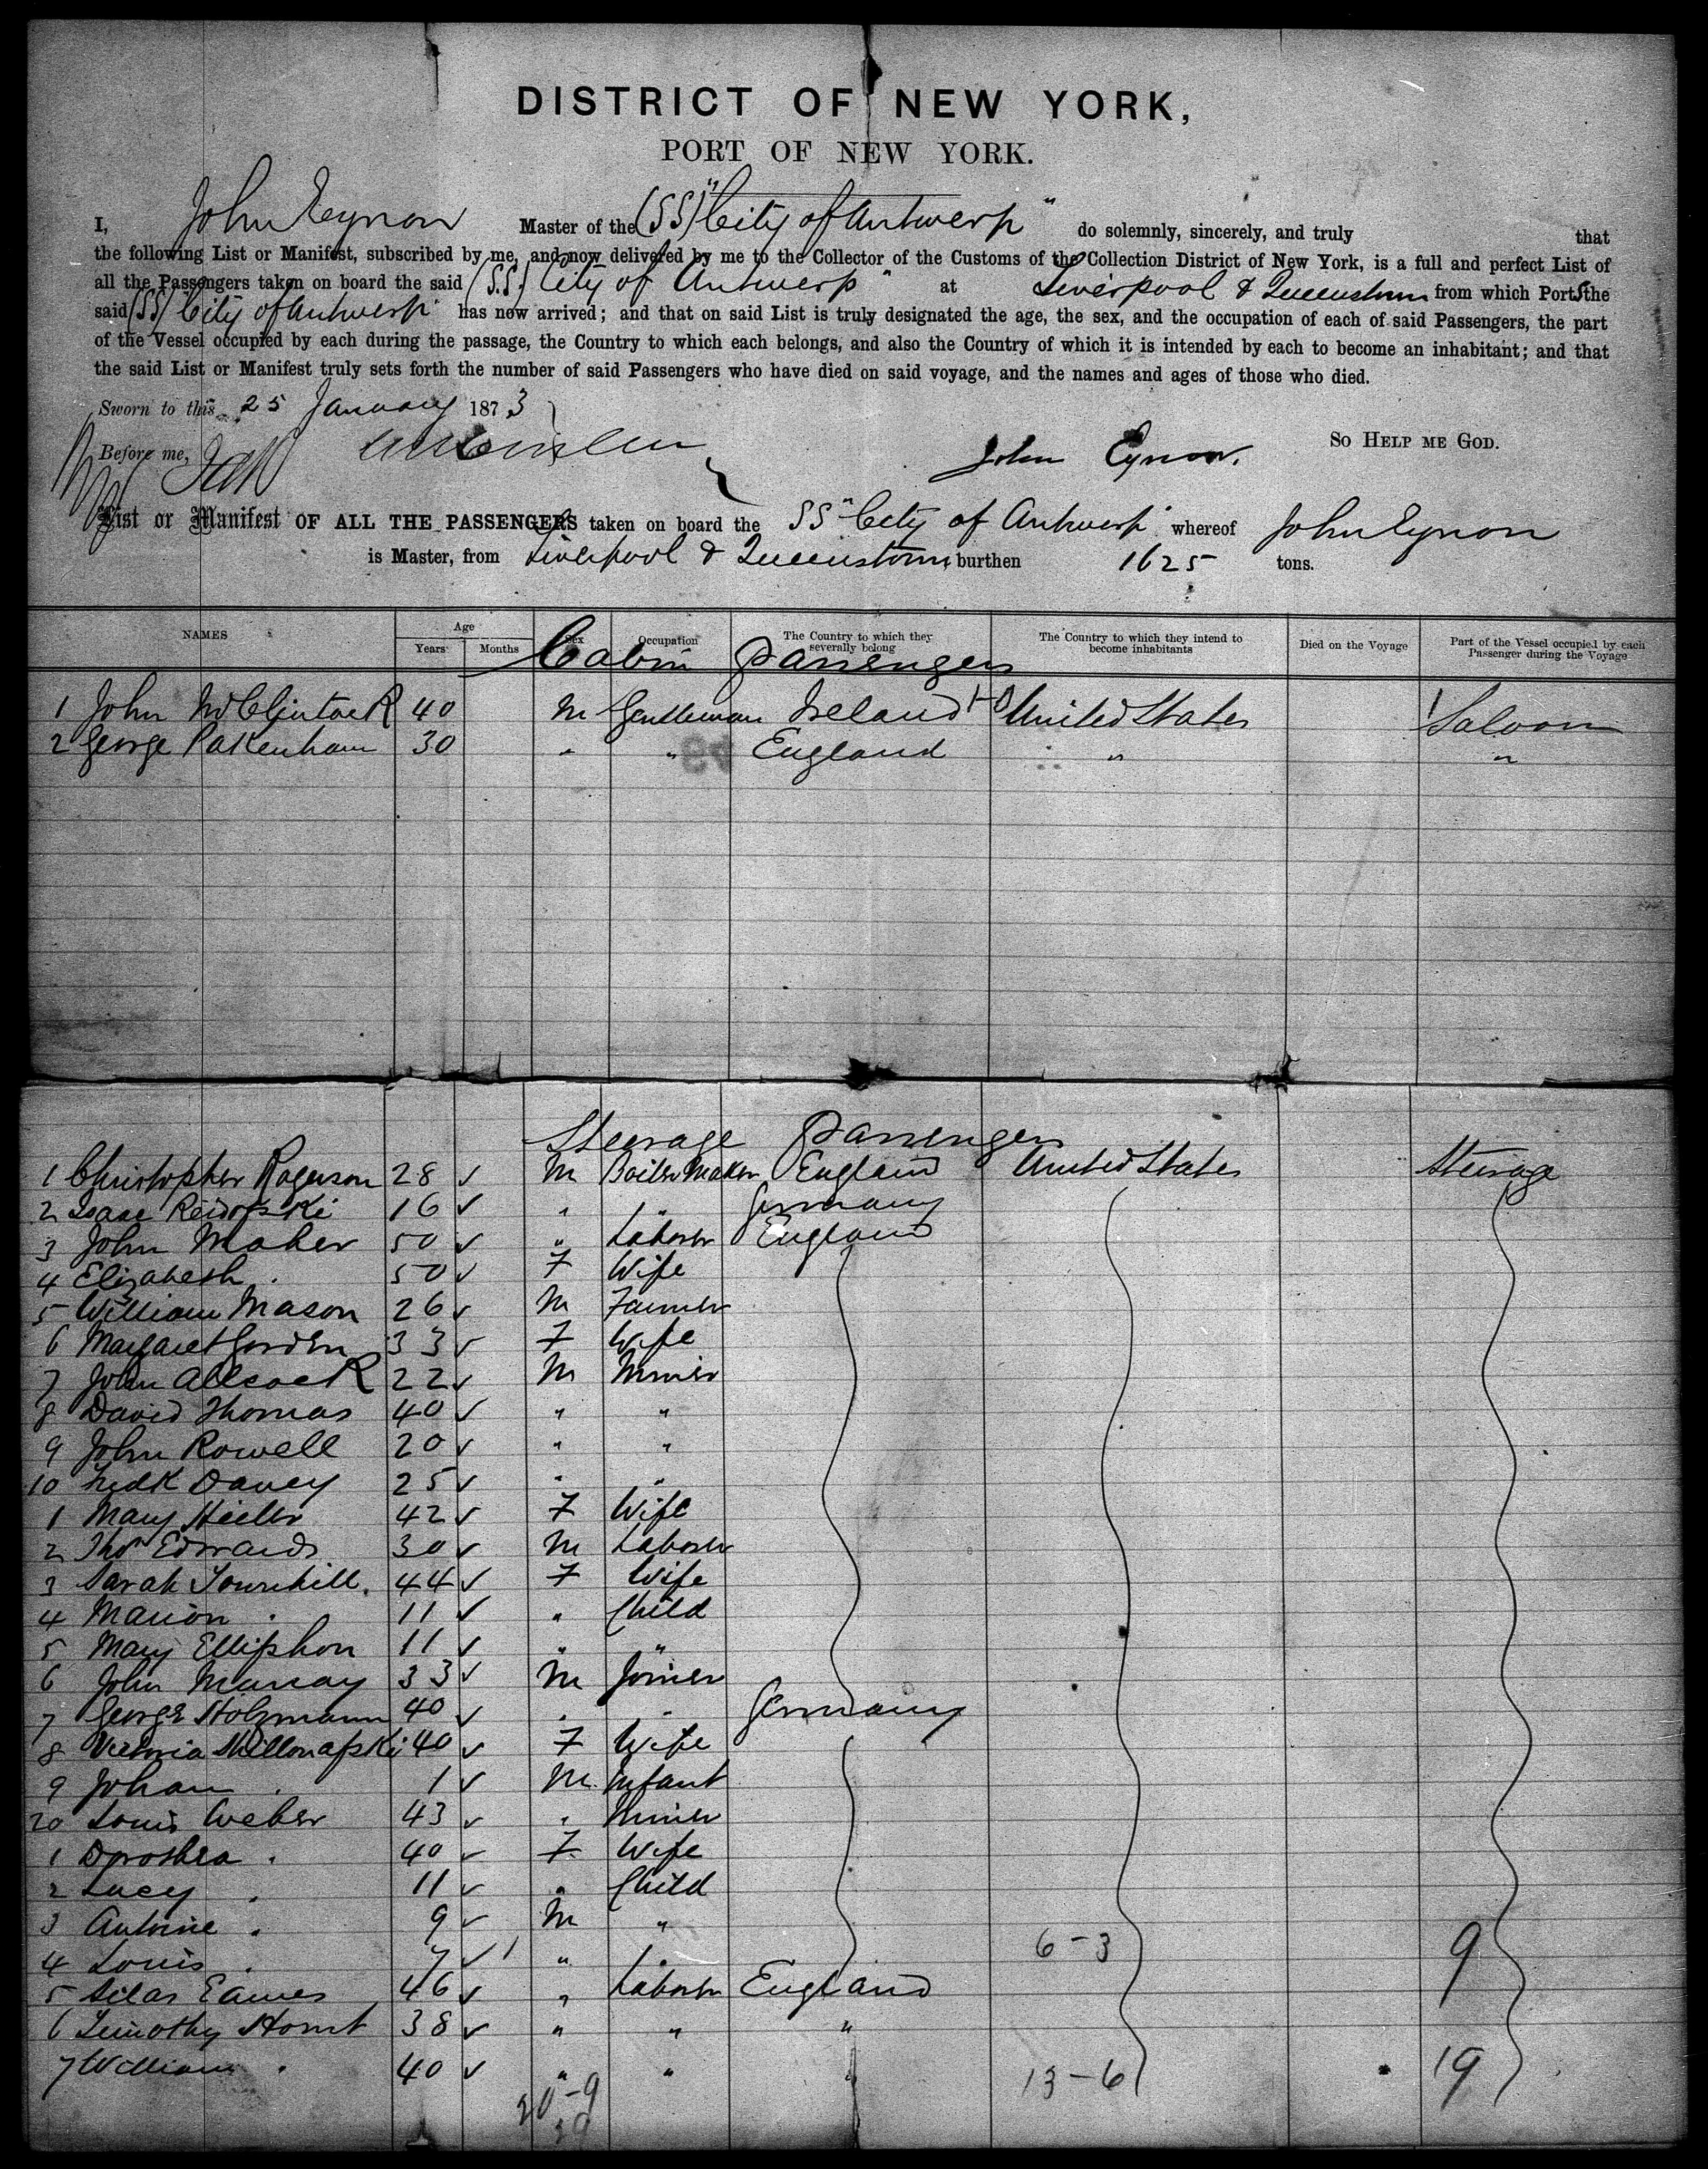 DISTRICT OF NEW YORK,
PORT OF NEW YORK.
I, John Eynon Master of the (SS) "City of Antwerp" do solemnly, sincerely, and truly that
the following List or Manifest, subscribed by me, and now delivered by me to the Collector of the Customs of the Collection District of New York, is a full and perfect List of
all the Passengers taken on board the said (S.S.) City of Antwerp" at Liverpool & Queenstown from which Ports the
said (SS) City of Antwerp" has now arrived; and that on said List is truly designated the age, the sex, and the occupation of each of said Passengers, the part
of the Vessel occupied by each during the passage, the Country to which each belongs, and also the Country of which it is intended by each to become an inhabitant; and that
the said List or Manifest truly sets forth the number of said Passengers who have died on said voyage, and the names and ages of those who died.
Sworn to this 25 January 1873
So Help me God.
Before me, John Eynon.
List or Manifest OF ALL THE PASSENGERS taken on board the SS "City of Antwerp" whereof John Eynon
is Master, from Liverpool & Queenstown, burthen 1625 tons.
NAMES Age Years Months Sex Occupation The Country to which they severally belong The Country to which they intend to become inhabitants Died on the Voyage Part of the Vessel occupied by each Passenger during the Voyage
Cabin Passengers
1 John McClintock 40 M Gentleman Ireland 1-0 United States 1 Saloon
2 George Pakenham 30 " " England " "
Steerage Passengers
1 Christopher Rogerson 28 ✓ M Boiler Maker England United States Steerage
2 Isaac 16 ✓ " " Germany
3 John Maher 50 ✓ " Laborer England
4 Elizabeth " 50 ✓ F Wife
5 William Mason 26 ✓ M Farmer
6 Margaret Gorden 33 ✓ F Wife
7 John Allcock 22 ✓ M Miner
8 David Thomas 40 ✓ " "
9 John Rowell 20 ✓ " "
10 Fredk Davey 25 ✓ " "
1 Mary 42 ✓ F Wife
2 Thos Edwards 30 ✓ M Laborer
3 Sarah Townhill 44 ✓ F Wife
4 Marion " 11 ✓ " Child
5 Mary 11 ✓ " "
6 John Murray 33 ✓ M Joiner
7 George Holzmann 40 ✓ " " Germany
8 Victoria 40 ✓ F Wife
9 Johan " 1 ✓ M Infant
20 Louis Weber 43 ✓ " Miner
1 Dorothea " 40 ✓ F Wife
2 Lucy " 11 ✓ " Child
3 Antoine " 9 ✓ M "
4 Louis " 7 ✓ 1 " " 6-3 9
5 Silas Eames 46 ✓ " Laborer England
6 Timothy 38 ✓ " " "
7 William " 40 ✓ " " " 13-6 19
20-9
29